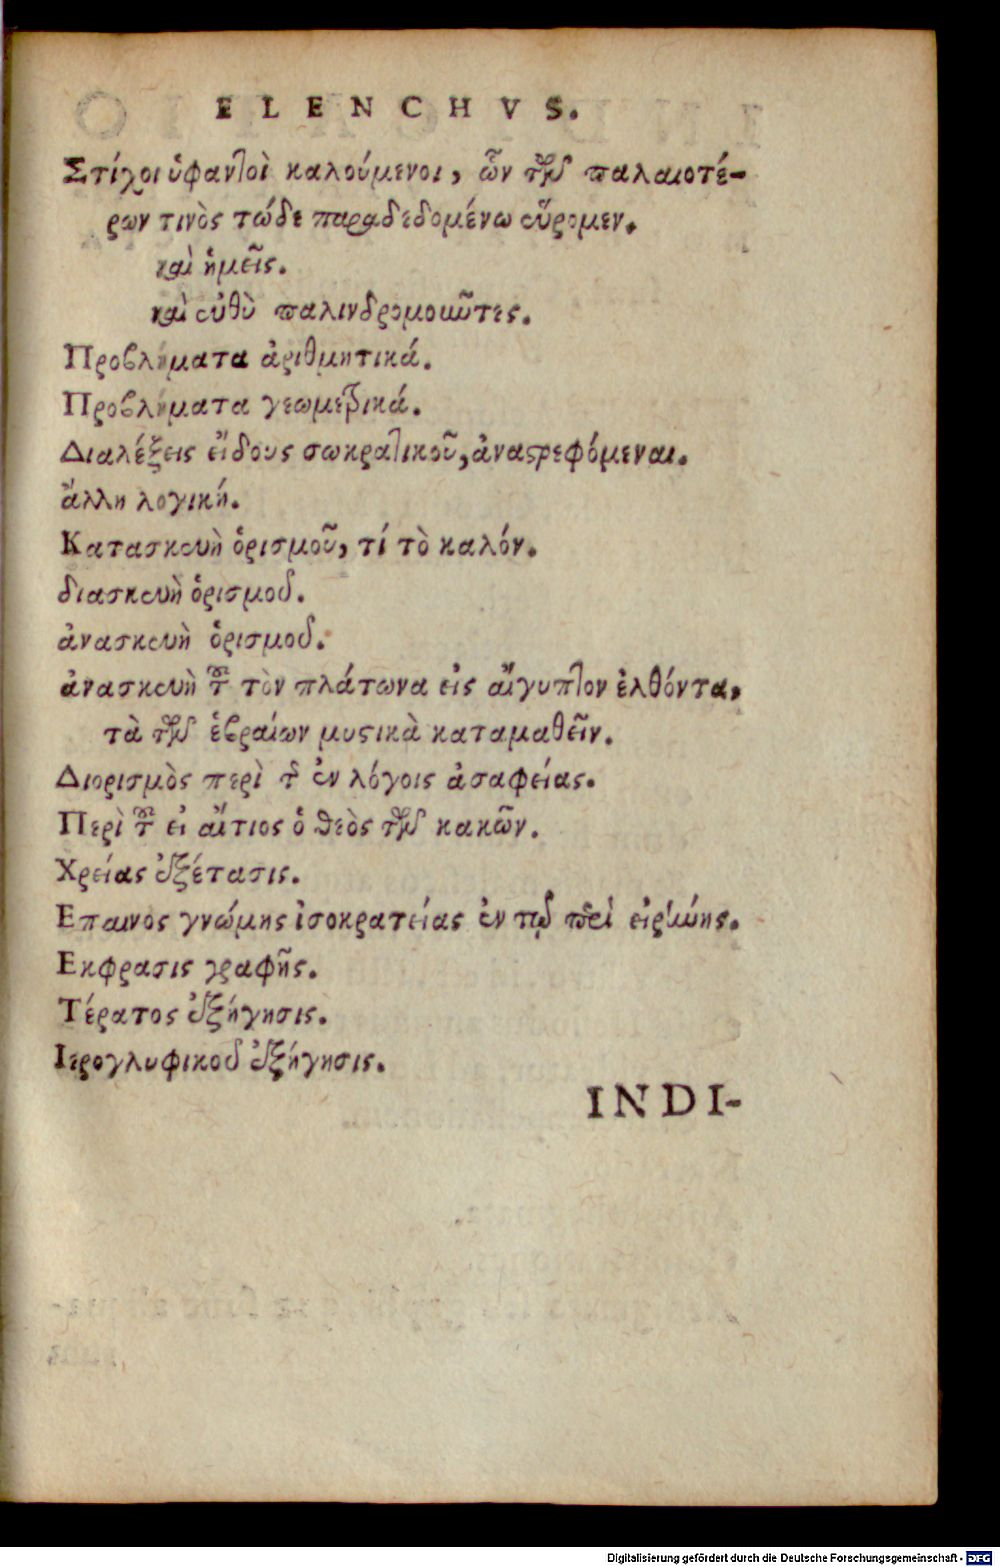 ELENCHVS.
Στίχοι ὑφαντοὶ καλούμενοι, ὧν τῶν παλαιοτέ-
ρων τινὸς τῷδε παραδεδομένῳ εὕρομεν.
καὶ ἡμεῖς.
καὶ εὐθὺ παλινδρομοῦντες.
Προβλήματα ἀριθμητικά.
Προβλήματα γεωμετρικά.
Διαλέξεις εἴδους σωκρατικοῦ, ἀναστρεφόμεναι.
ἄλλη λογική.
Κατασκευὴ ὁρισμοῦ, τί τὸ καλόν.
διασκευὴ ὁρισμοῦ.
ἀνασκευὴ ὁρισμοῦ.
ἀνασκευὴ τοῦ τὸν πλάτωνα εἰς αἴγυπτον ἐλθόντα,
τὰ τῶν ἑβραίων μυστικὰ καταμαθεῖν.
Διορισμὸς περὶ τῆς ἐν λόγοις ἀσαφείας.
Περὶ τοῦ εἰ αἴτιος ὁ θεὸς τῶν κακῶν.
Χρείας ἐξέτασις.
Επαινος γνώμης ἰσοκρατείας ἐν τῷ περὶ εἰρήνης.
Εκφρασις γραφῆς.
Τέρατος ἐξήγησις.
Ιερογλυφικοῦ ἐξήγησις.
INDI-
Digitalisierung gefördert durch die Deutsche Forschungsgemeinschaft - DFG